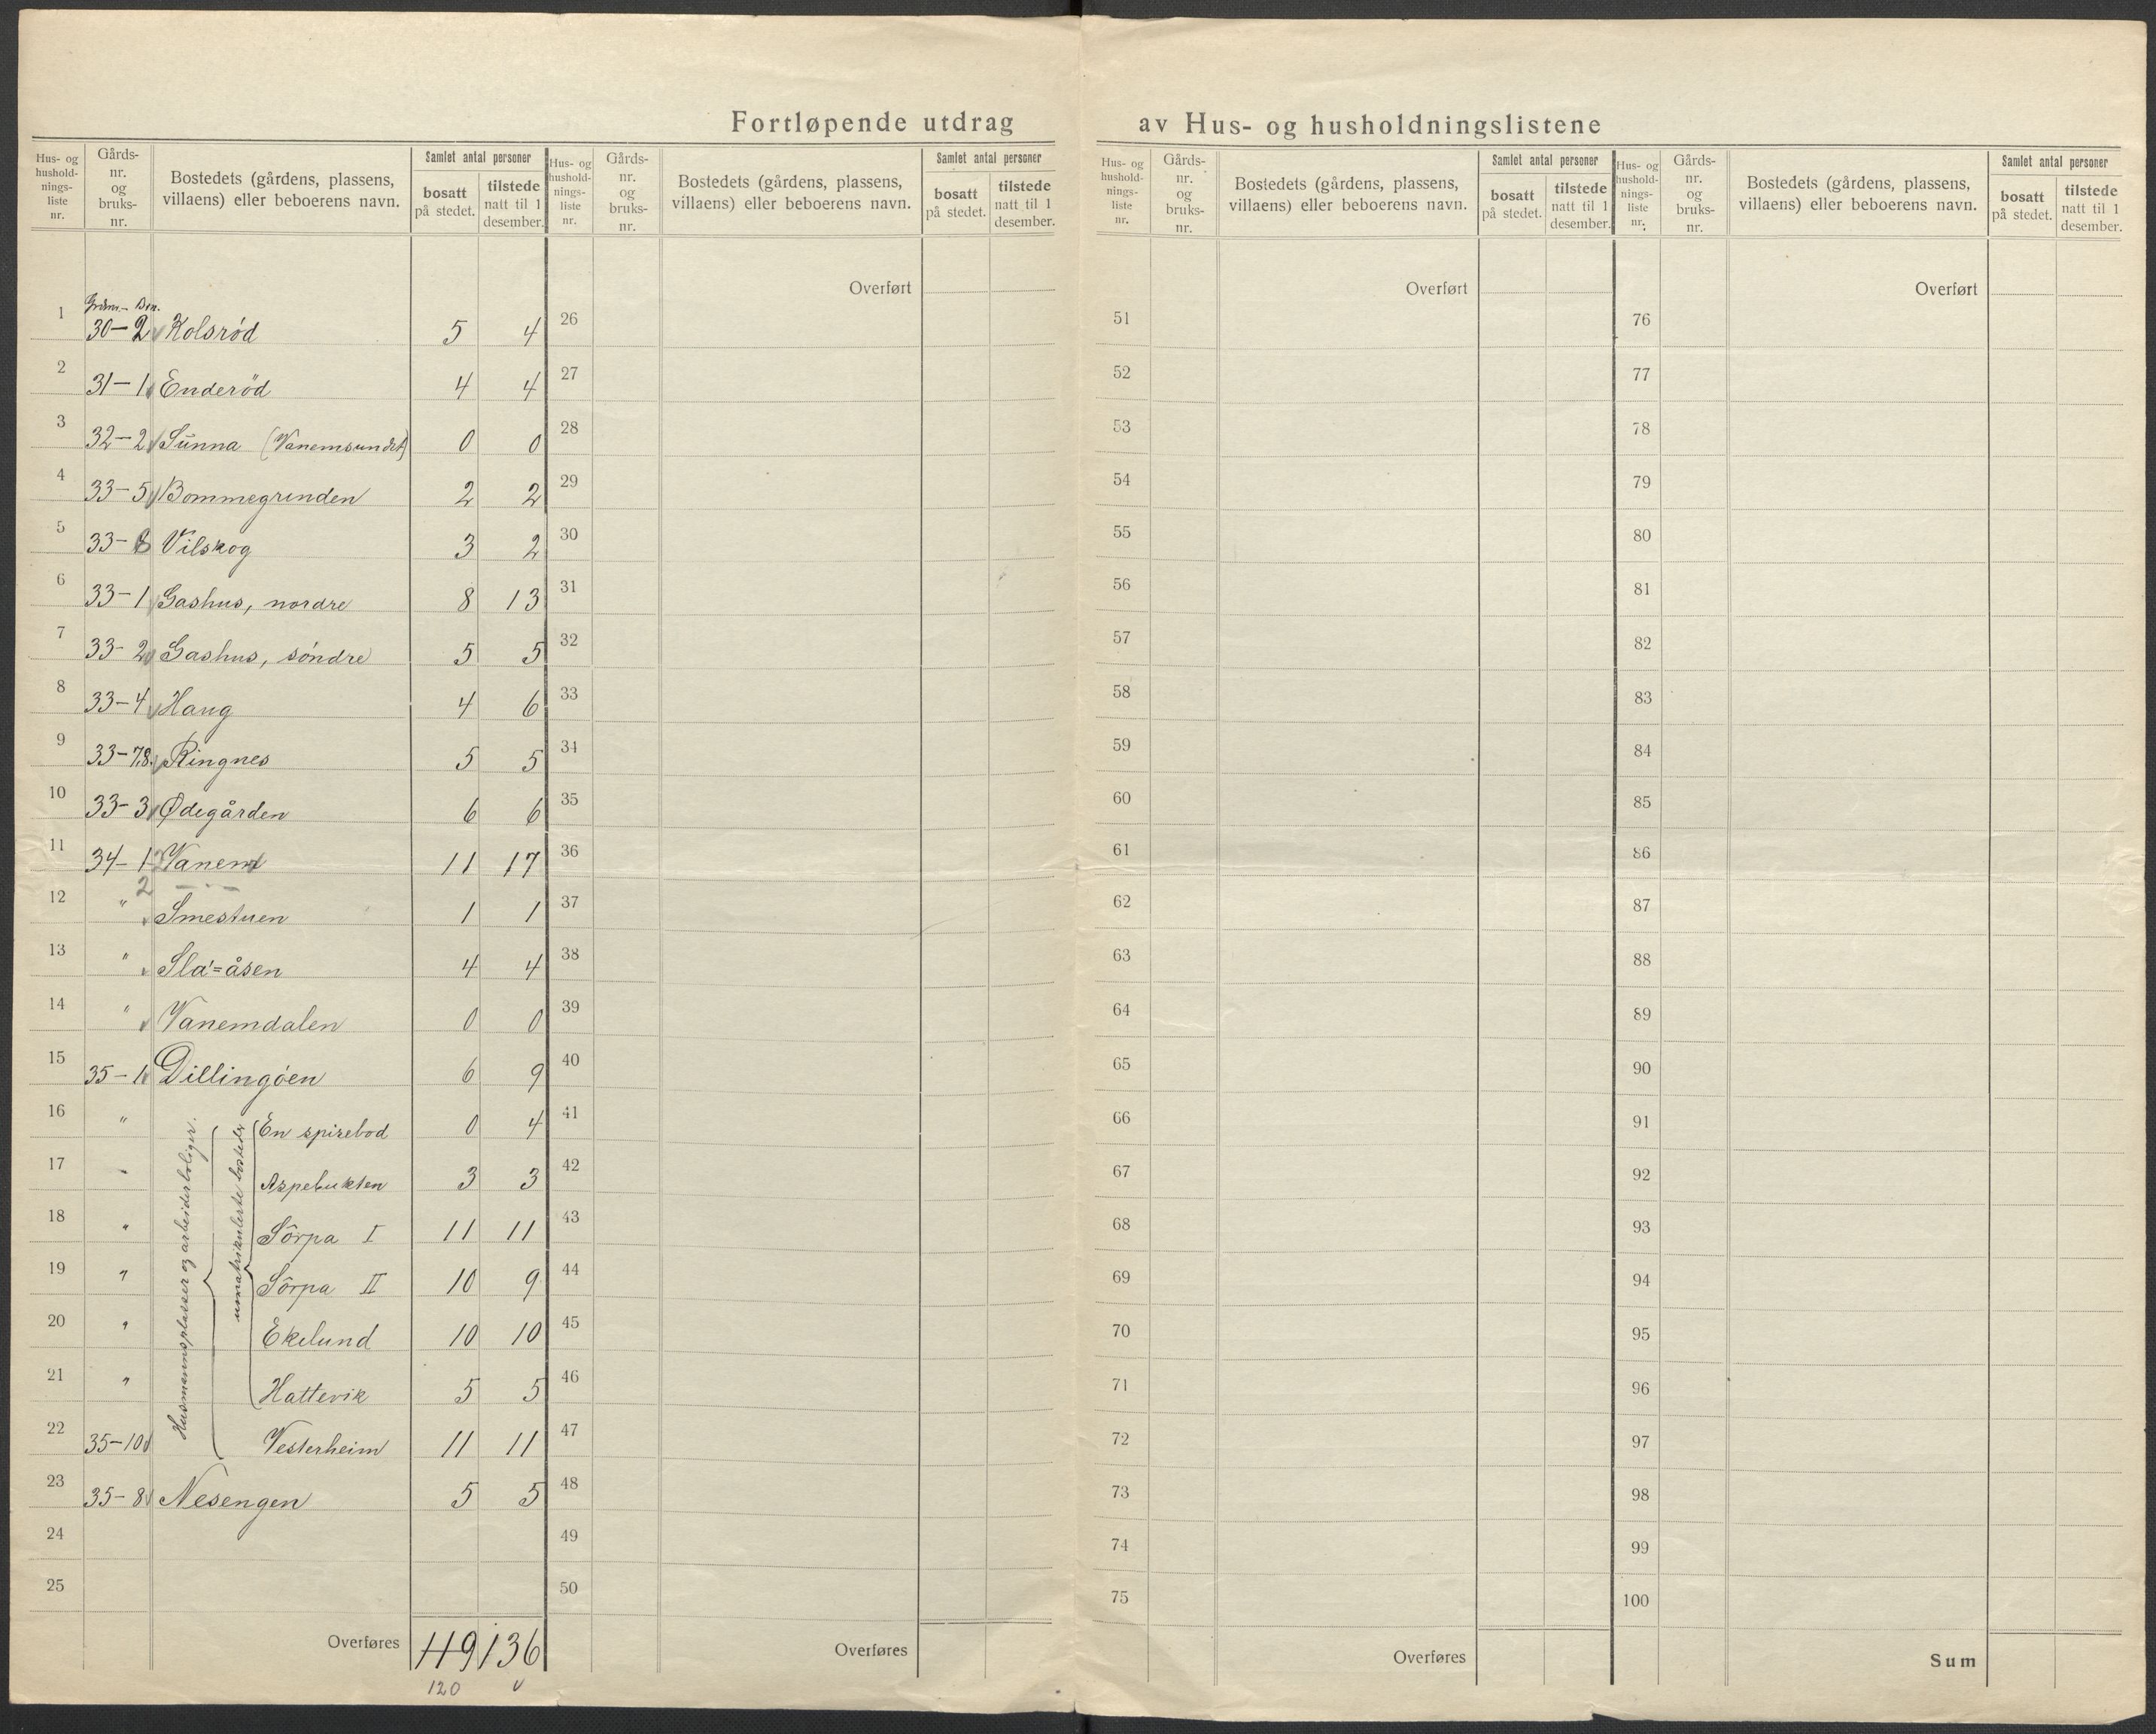 Fortløpende utdrag av Hus- og husholdningslistene
Hus- og hushold-nings-liste nr.
Gårds-nr. og bruks-nr.
Bostedets (gårdens, plassens, villaens) eller beboerens navn.
Samlet antal personer
bosatt på stedet.
tilstede natt til 1 desember.
Hus- og hushold-nings-liste nr.
Gårds-nr. og bruks-nr.
Bostedets (gårdens, plassens, villaens) eller beboerens navn.
Samlet antal personer
bosatt på stedet.
tilstede natt til 1 desember.
Hus- og hushold-nings-liste nr.
Gårds-nr. og bruks-nr.
Bostedets (gårdens, plassens, villaens) eller beboerens navn.
Samlet antal personer
bosatt på stedet.
tilstede natt til 1 desember.
Hus- og hushold-nings-liste nr.
Gårds-nr. og bruks-nr.
Bostedets (gårdens, plassens, villaens) eller beboerens navn.
Samlet antal personer
bosatt på stedet.
tilstede natt til 1 desember.
1 30-2 Kolsrød 5 4
2 31-1 Enderöd 4 4
3 32-2 Sunna (Vanemsundet) 0 0
4 33-5 Bommegrinden 2 2
5 33-6 Vilskog 3 2
6 33-1 Gashus, nordre 8 13
7 33-2 Gashus, søndre 5 5
8 33-4 Haug 4 6
9 33-7,8. Ringnes 5 5
10 33-3 Ødegården 6 6
11 34-1 Vanem 11 17
2
12 " Smestuen 1 1
13 " Sla'=åsen 4 4
14 " Vanemdalen 0 0
15 35-1 Dillingøen 6 9
Husmannsplasser og arbeiderboliger.
umatrikulerte bosteder
16 " En spisebod 0 4
17 " Aspebukten 3 3
18 " Sörpa I 11 11
19 " Sörpa II 10 9
20 " Ekelund 10 10
21 " Hattevik 5 5
22 35-10 Vesterheim 11 11
23 35-8 Nesengen 5 5
24
25
Overføres 119 136
120
Overført
26
27
28
29
30
31
32
33
34
35
36
37
38
39
40
41
42
43
44
45
46
47
48
49
50
Overføres
Overført
51
52
53
54
55
56
57
58
59
60
61
62
63
64
65
66
67
68
69
70
71
72
73
74
75
Overføres
Overført
76
77
78
79
80
81
82
83
84
85
86
87
88
89
90
91
92
93
94
95
96
97
98
99
100
Sum